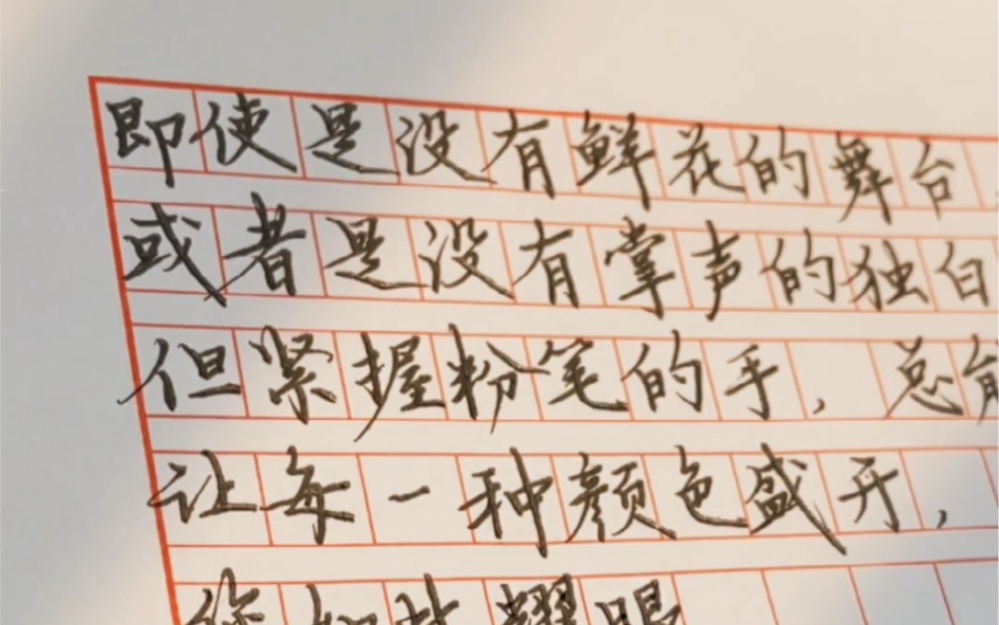 即使是没有鲜花的舞台
或者是没有掌声的独白
但紧握粉笔的手，总能
让每一种颜色盛开，
你如此耀眼